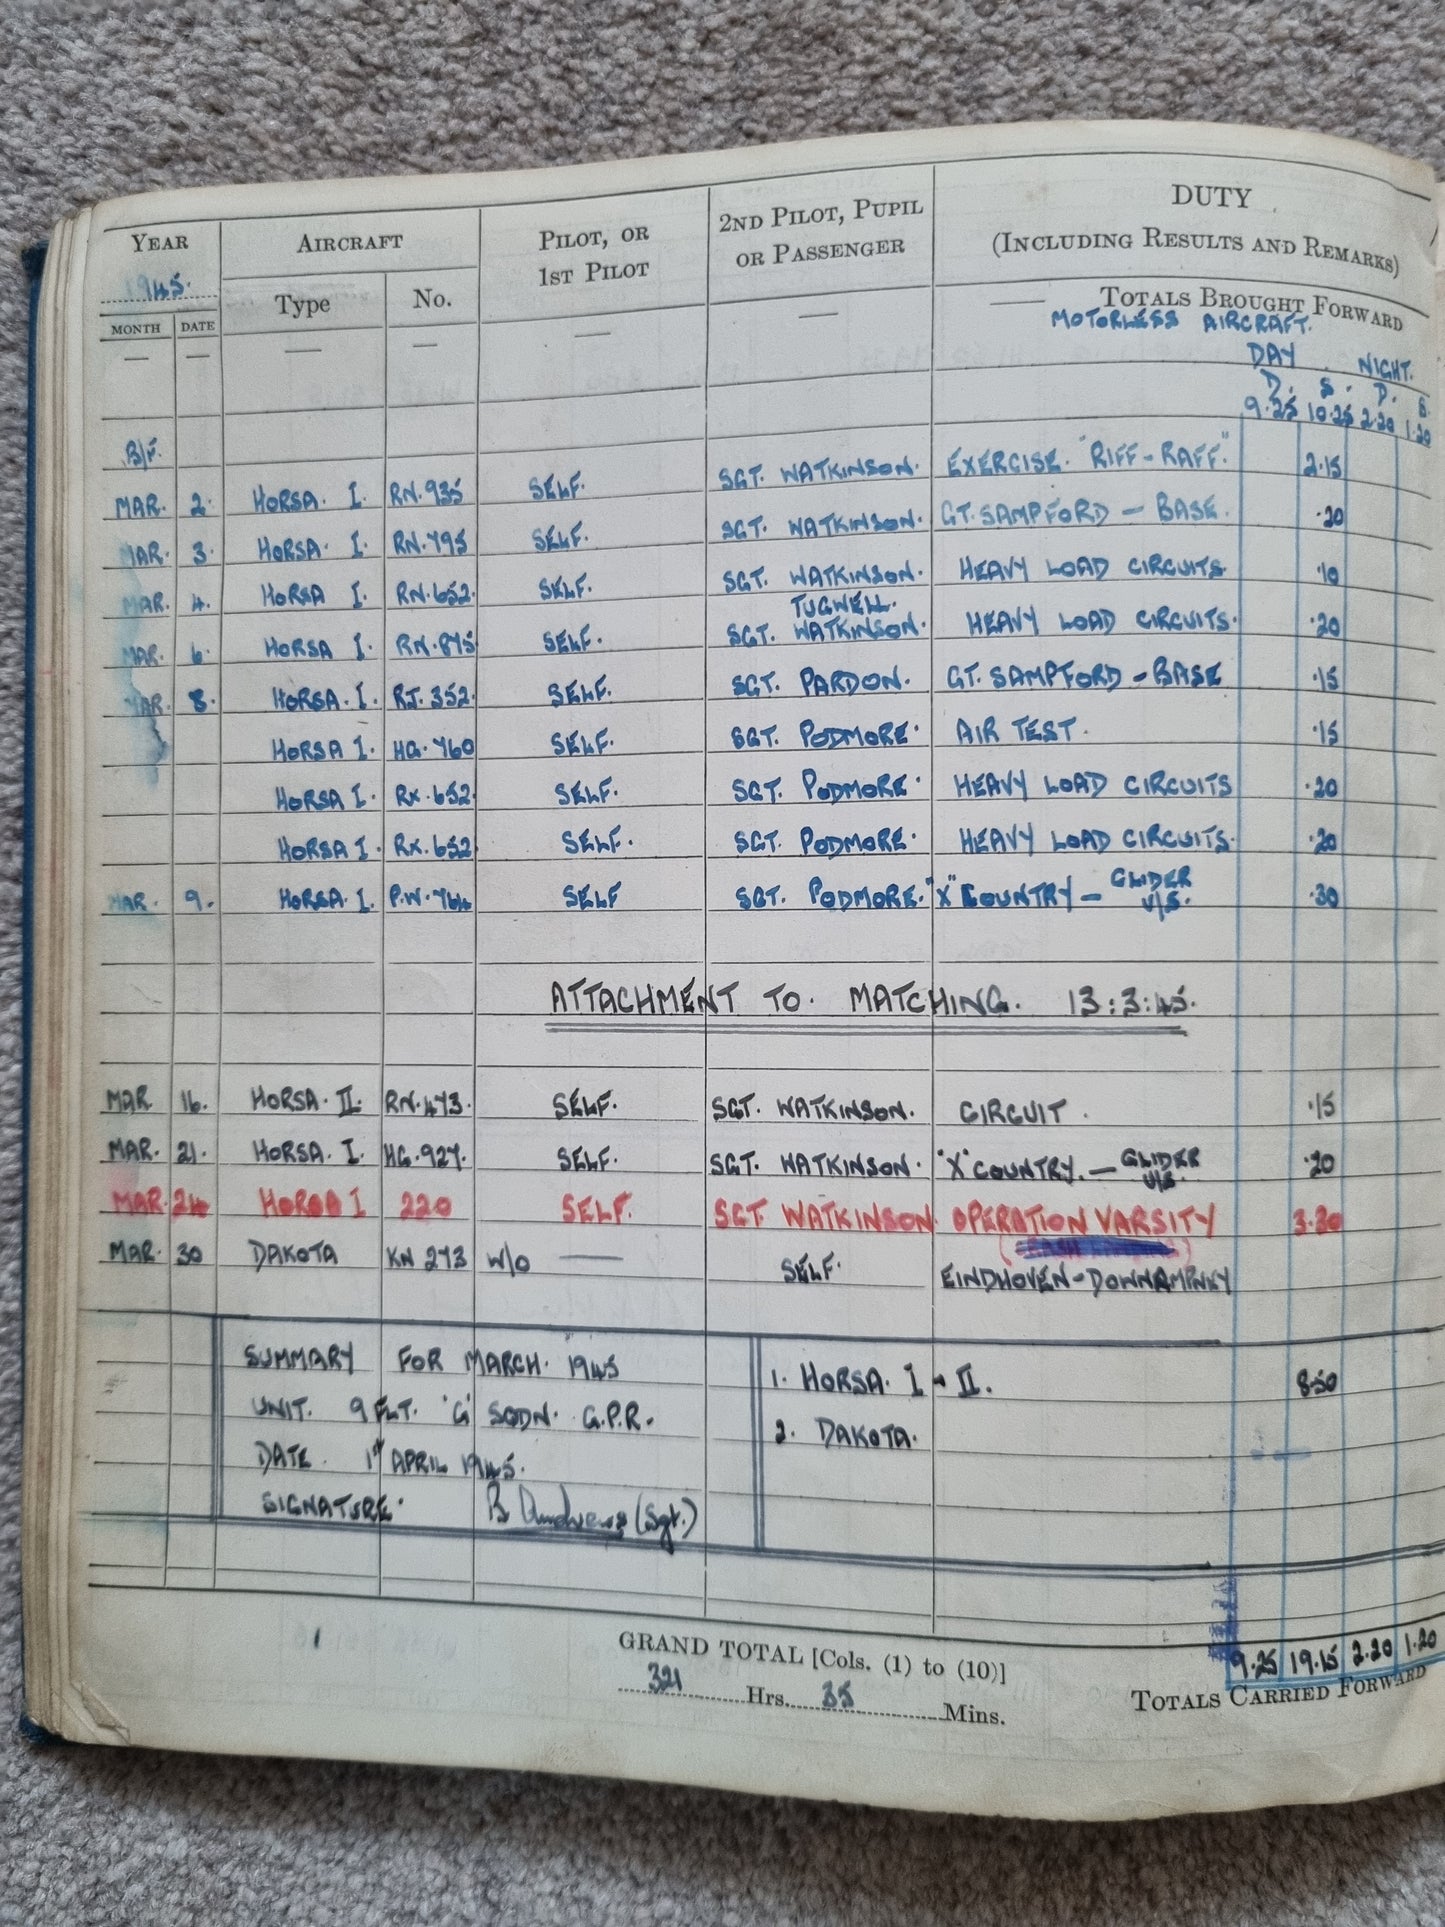 YEAR AIRCRAFT PILOT, OR 1ST PILOT 2ND PILOT, PUPIL OR PASSENGER DUTY (INCLUDING RESULTS AND REMARKS)
1945. Type No.
MONTH DATE
— — — — — — —— TOTALS BROUGHT FORWARD
MOTORLESS AIRCRAFT.
DAY NIGHT.
D. S. D. S.
B/F. 9.25 10.25 2.20 1.20
MAR. 2. HORSA. I. RN.935 SELF. SGT. WATKINSON. EXERCISE. "RIFF-RAFF." 2.15
MAR. 3. HORSA. I. RN.795 SELF. SGT. WATKINSON. GT. SAMPFORD — BASE. .20
MAR. 4. HORSA I. RN.652. SELF. SGT. WATKINSON. HEAVY LOAD CIRCUITS. .10
MAR. 6. HORSA I. RN.875 SELF. SGT. TUGWELL. WATKINSON. HEAVY LOAD CIRCUITS. .20
MAR. 8. HORSA. I. RJ.352. SELF. SGT. PARDON. GT. SAMPFORD — BASE .15
HORSA I. HG.760 SELF. SGT. PODMORE. AIR TEST. .15
HORSA I. RX.652. SELF. SGT. PODMORE. HEAVY LOAD CIRCUITS .20
HORSA I. RX.652. SELF. SGT. PODMORE. HEAVY LOAD CIRCUITS. .20
MAR. 9. HORSA. I. P.W.764 SELF SGT. PODMORE. "X" COUNTRY — GLIDER U/S. .30
ATTACHMENT TO. MATCHING. 13:3:45.
MAR. 16. HORSA. II. RN.473. SELF. SGT. WATKINSON. CIRCUIT. .15
MAR. 21. HORSA. I. HG.927. SELF. SGT. WATKINSON. "X" COUNTRY. — GLIDER U/S. .20
MAR. 24 HORSA I 220 SELF. SGT WATKINSON. OPERATION VARSITY 3.20
MAR. 30 DAKOTA KN 273 W/O —— SELF. EINDHOVEN-DOWNAMPNEY
SUMMARY FOR MARCH. 1945 1. HORSA. I - II. 8.50
UNIT. 9 FLT. 'G' SQDN. G.P.R. 2. DAKOTA.
DATE. 1st APRIL 1945.
SIGNATURE. B Andrews (Sgt.)
GRAND TOTAL [Cols. (1) to (10)] 9.25 19.15 2.20 1.20
321 Hrs. 35 Mins. TOTALS CARRIED FORWARD